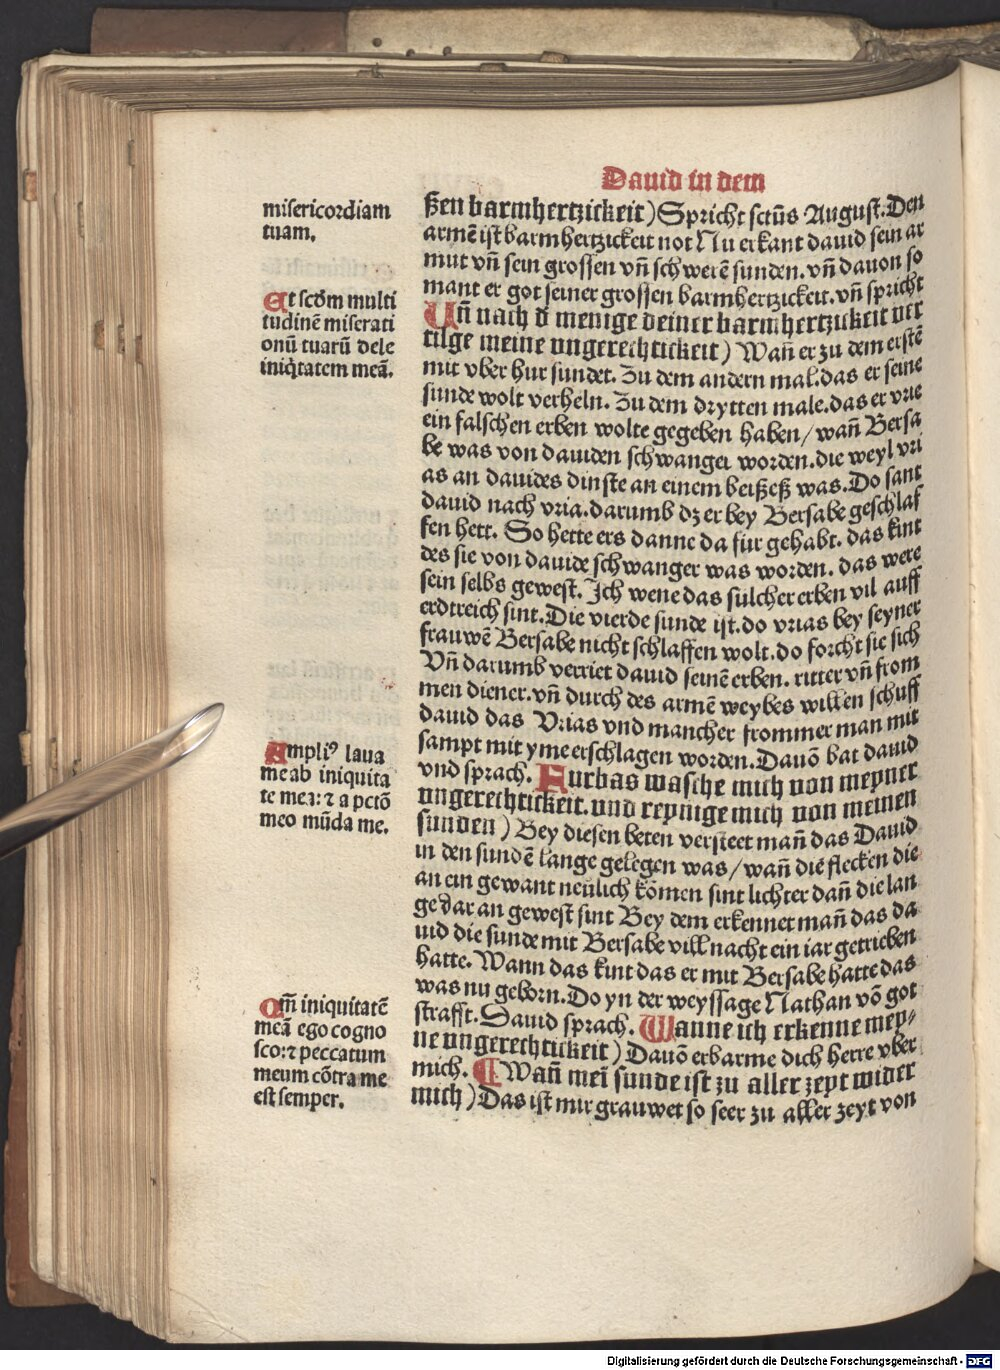 Dauid in dem
misericordiam
tuam.
Et scd̄m multi
tudinē miserati
onū tuarū dele
iniq̇tatem meā.
Ampliꝰ laua
me ab iniquita
te mea: ⁊ a pctō
meo mūda me.
Qm̄ iniquitatē
meā ego cogno
sco: ⁊ peccatum
meum cōtra me
est semper.
ßen barmhertzickeit) Spricht sctūs August. Den
armē ist barmhertzickeit not Nu erkant dauid sein ar
mut vn̄ sein grossen vn̄ schwerē sunden. vn̄ dauon so
mant er got seiner grossen barmhertzickeit. vn̄ spricht
Un̄ nach d̄ menige deiner barmhertzikeit ver
tilge meine vngerechtickeit) Wan̄ er zu dem erstē
mit vber hur sundet. Zu dem andern mal. das er seine
sunde wolt verheln. Zu dem drytten male. das er vrie
ein falschen erben wolte gegeben haben/ wan̄ Bersa
be was von dauiden schwanger worden. die weyl vri
as an dauides dinste an einem beißeß was. Do sant
dauid nach vria. darumb dz er bey Bersabe geschlaf
fen hett. So hette ers danne da fur gehabt. das kint
des sie von dauide schwanger was worden. das were
sein selbs gewest. Ich wene das sulcher erben vil auff
erdtreich sint. Die vierde sunde ist. do vrias bey seyner
frauwē Bersabe nicht schlaffen wolt. do forcht sie sich
Vn̄ darumb verriet dauid seinē erben. ritter vn̄ from
men diener. vn̄ durch des armē weybes willen schuff
dauid das Vrias vnd mancher frommer man mit
sampt mit yme erschlagen worden. Dauō bat dauid
vnd sprach. Furbas wasche mich von meyner
vngerechtickeit. vnd reynige mich von meinen
sunden) Bey diesen beten versteet man̄ das Dauid
in den sundē lange gelegen was/ wan̄ die flecken die
an ein gewant neülich komen sint lichter dan̄ die lan
ge dar an gewest sint Bey dem erkennet man̄ das da
uid die sunde mit Bersabe vill nacht ein iar getrieben
hatte. Wann das kint das er mit Bersabe hatte das
was nu geborn. Do yn der weyssage Nathan vō got
strafft. Dauid sprach. Wanne ich erkenne mey⸗
ne vngerechtikeit) Dauō erbarme dich herre vber
mich. ¶ Wan̄ mei̅ sunde ist zu aller zeyt wider
mich) Das ist mir grauwet so seer zu aller zeyt von
Digitalisierung gefördert durch die Deutsche Forschungsgemeinschaft - DFG